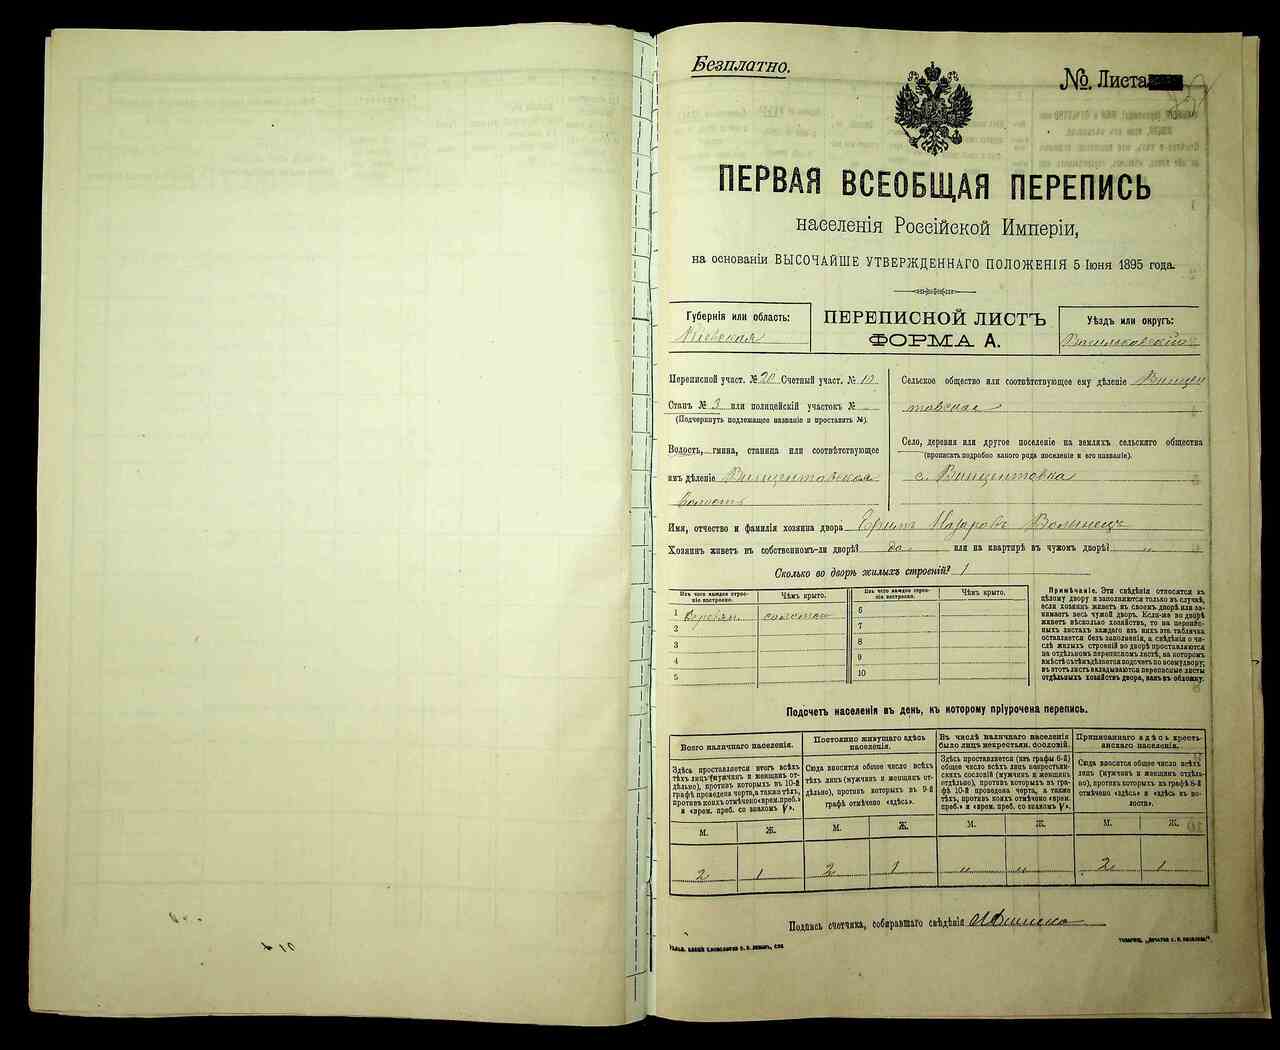 Безплатно.
№ Листа
ПЕРВАЯ ВСЕОБЩАЯ ПЕРЕПИСЬ
населенія Россійской Имперіи,
на основаніи ВЫСОЧАЙШЕ УТВЕРЖДЕННАГО ПОЛОЖЕНІЯ 5 Іюня 1895 года.
Губернія или область:
Кіевская
ПЕРЕПИСНОЙ ЛИСТЪ
ФОРМА А.
Уѣздъ или округъ:
Васильковскій
Переписной участ. № 20 Счетный участ. № 10
Станъ № 3 или полицейскій участокъ №
(Подчеркнуть подлежащее названіе и проставить №).
Волость, гмина, станица или соотвѣтствующее
имъ дѣленіе Винцентовская
волость
Сельское общество или соотвѣтствующее ему дѣленіе Винцен
товское
Село, деревня или другое поселеніе на земляхъ сельскаго общества
(прописать подробно какого рода поселеніе и его названіе).
с. Винцентовка
Имя, отчество и фамилія хозяина двора Ефимъ Назаровъ Волынецъ
Хозяинъ живетъ въ собственномъ-ли дворѣ? да или на квартирѣ въ чужомъ дворѣ? "
Сколько во дворѣ жилыхъ строеній? 1
Изъ чего каждое строеніе построено.
Чѣмъ крыто.
Изъ чего каждое строеніе построено.
Чѣмъ крыто.
1 Деревян. соломою 6
2 7
3 8
4 9
5 10
Примѣчаніе. Эти свѣдѣнія относятся къ
цѣлому двору и заполняются только въ случаѣ,
если хозяинъ живетъ въ своемъ дворѣ или за-
нимаетъ весь чужой дворъ. Если-же во дворѣ
живетъ нѣсколько хозяйствъ, то на перепис-
ныхъ листахъ каждаго изъ нихъ эта табличка
оставляется безъ заполненія, а свѣдѣнія о чи-
слѣ жилыхъ строеній во дворѣ проставляются
на отдѣльномъ переписномъ листѣ, на которомъ
вмѣстѣ съ тѣмъ дѣлается подсчетъ по всему двору;
въ этотъ листъ вкладываются переписные листы
отдѣльныхъ хозяйствъ двора, какъ въ обложку.
Подсчетъ населенія въ день, къ которому пріурочена перепись.
Всего наличнаго населенія.
Здѣсь проставляется итогъ всѣхъ
тѣхъ лицъ (мужчинъ и женщинъ от-
дѣльно), противъ которыхъ въ 10-й
графѣ проведена черта, а также тѣхъ,
противъ коихъ отмѣчено «врем. преб.»
и «врем. преб. со знакомъ V».
Постоянно живущаго здѣсь
населенія.
Сюда вносится общее число всѣхъ
тѣхъ лицъ (мужчинъ и женщинъ от-
дѣльно), противъ которыхъ въ 9-й
графѣ отмѣчено «здѣсь».
Въ числѣ наличнаго населенія
было лицъ некрестьян. сословій.
Здѣсь проставляется (изъ графы 6-й)
общее число всѣхъ лицъ некрестьян-
скихъ сословій (мужчинъ и женщинъ
отдѣльно), противъ которыхъ въ гра-
фѣ 10-й проведена черта, а также
тѣхъ, противъ коихъ отмѣчено «врем.
преб.» и «врем. преб. со знакомъ V».
Приписаннаго здѣсь кресть-
янскаго населенія.
Сюда вносится общее число всѣхъ
лицъ (мужчинъ и женщинъ отдѣль-
но), противъ которыхъ въ графѣ 8-й
отмѣчено «здѣсь» и «здѣсь въ во-
лости».
М. Ж. М. Ж. М. Ж. М. Ж.
2 1 2 1 " " 2 1
Подпись счетчика, собиравшаго свѣдѣнія